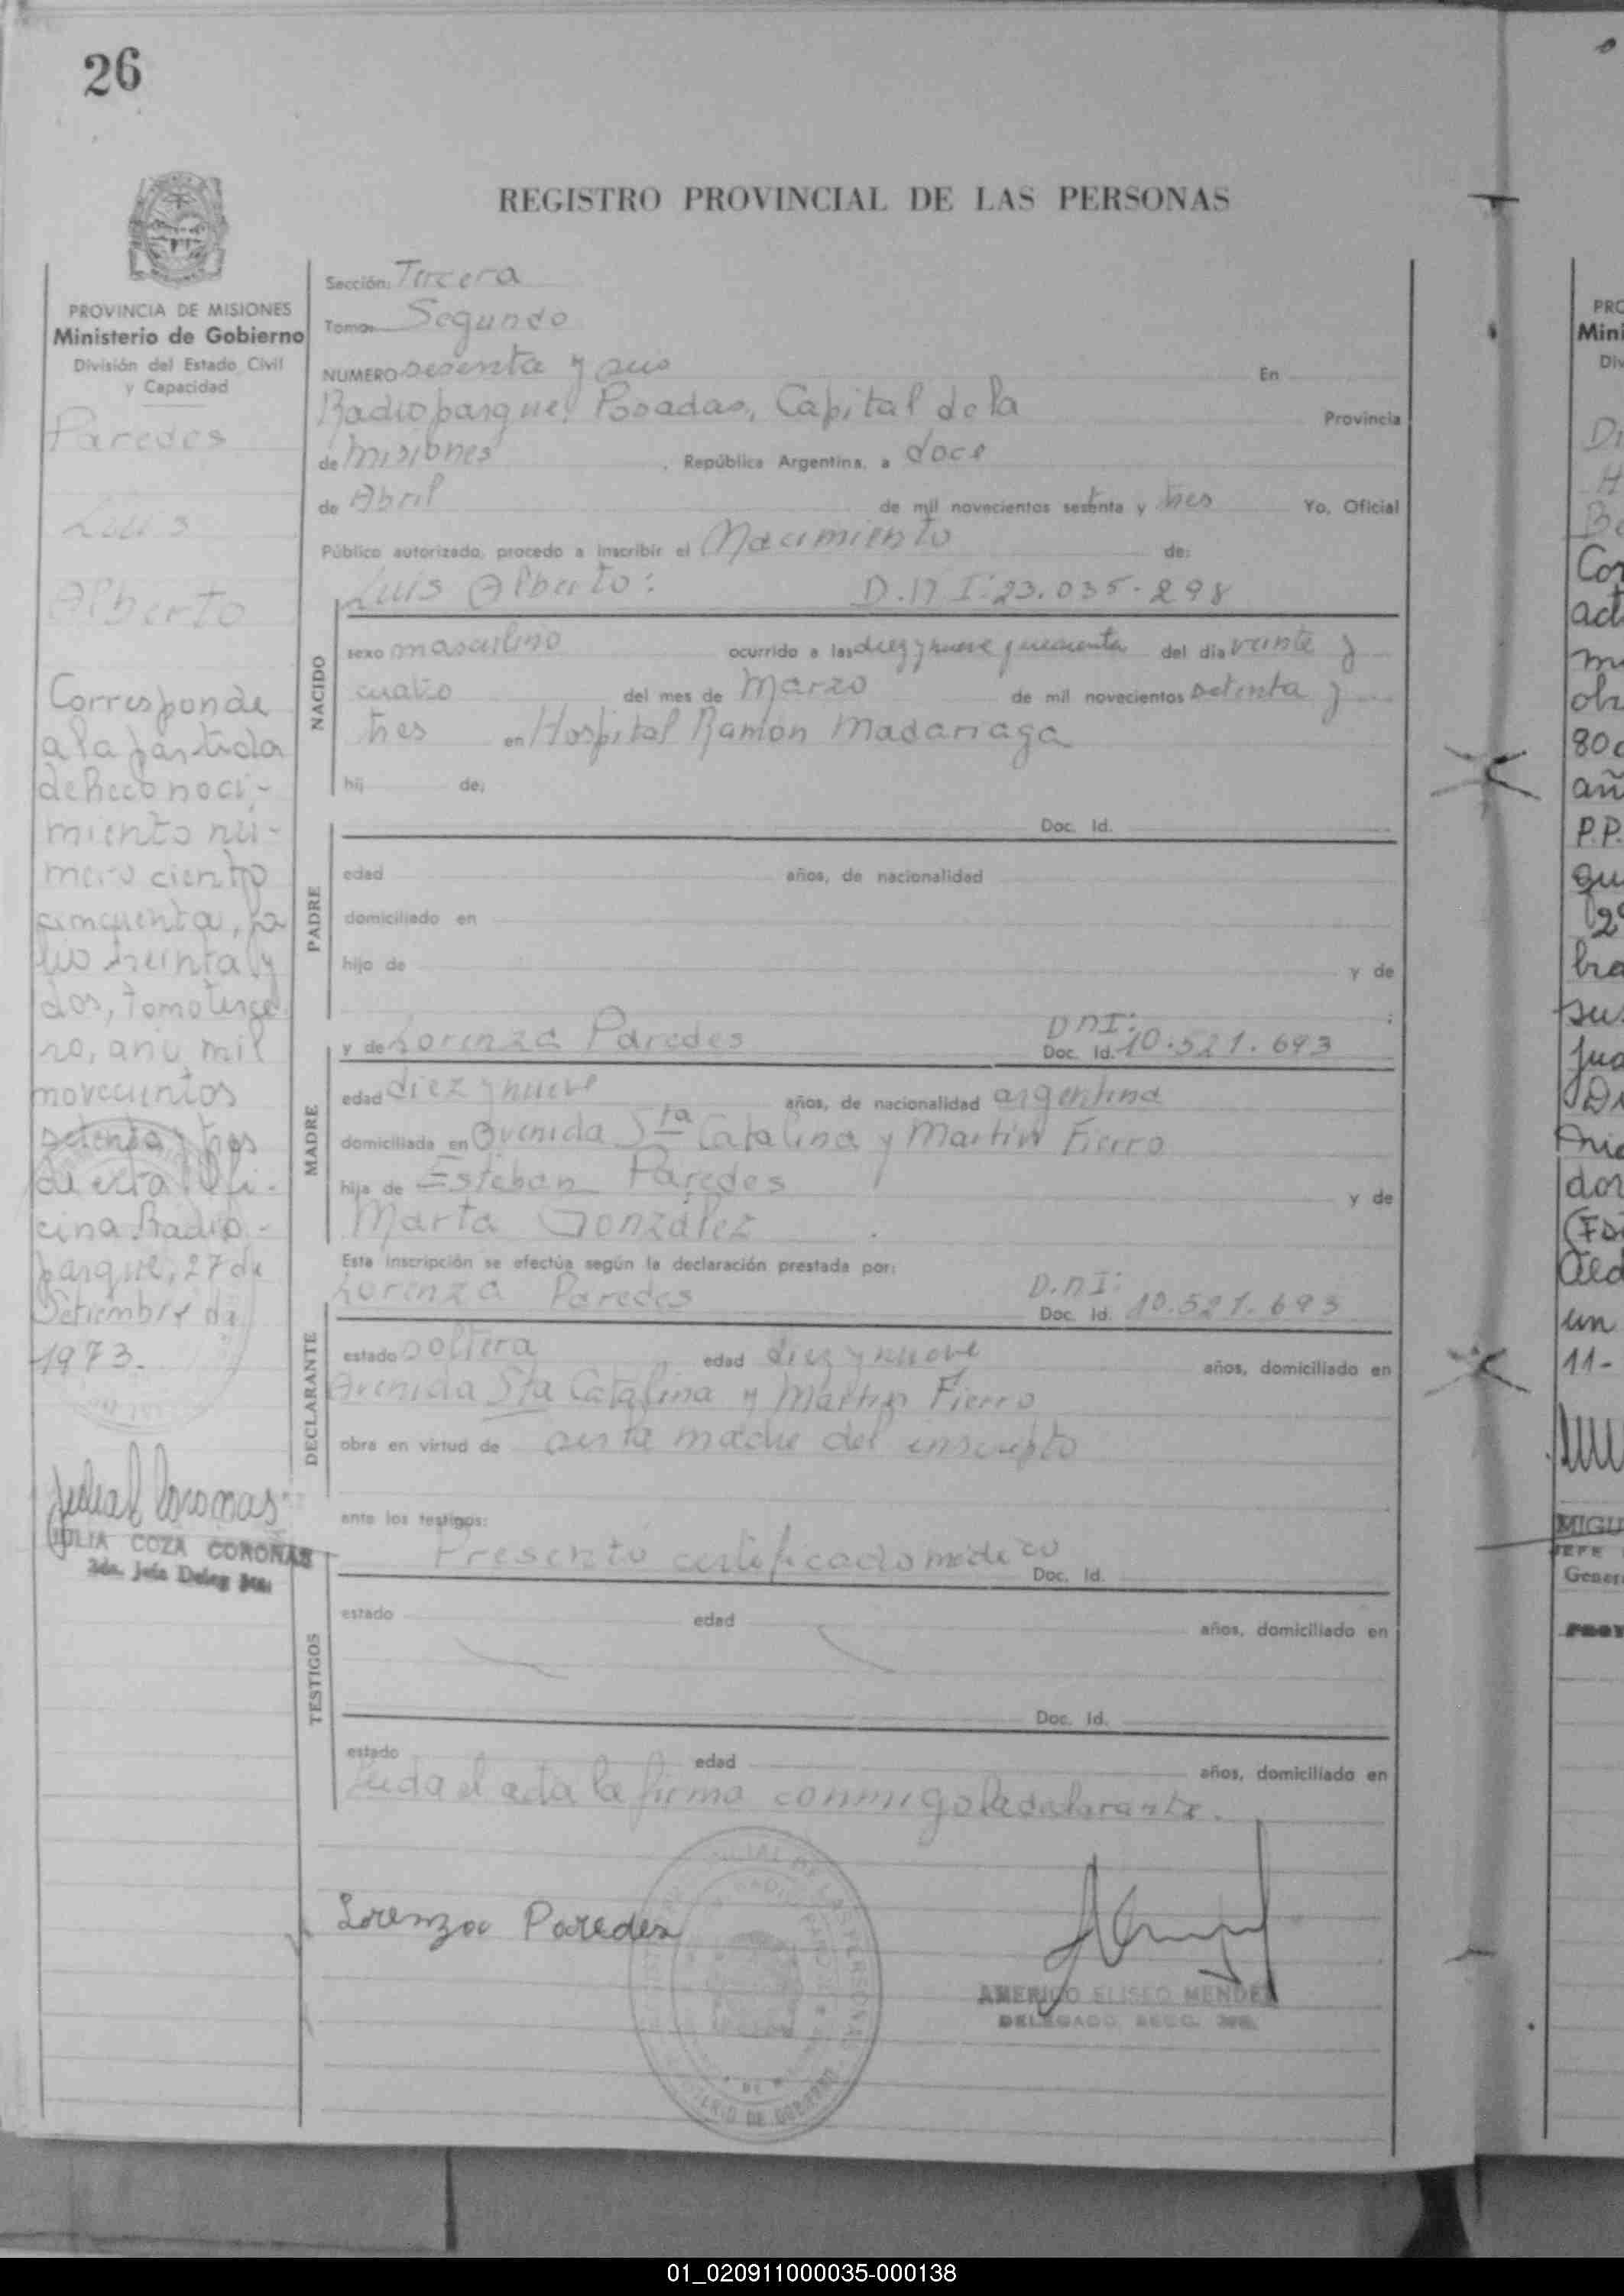 26
REGISTRO PROVINCIAL DE LAS PERSONAS
PROVINCIA DE MISIONES
Ministerio de Gobierno
División del Estado Civil
y Capacidad
Paredes
Luis
Alberto
Corresponde
a la partida
de Reconoci-
miento nú-
mero ciento
cincuenta, fo
lio treinta y
dos, Tomo terce
ro, año mil
novecientos
setenta y tres
de esta Ofi-
cina Radio-
parque, 27 de
Setiembre de
1973.
JULIA COZA CORONAS
2da. Jefe Deleg
Sección: Tercera
Tomo: Segundo
NUMERO sesenta y seis En
Radioparque, Posadas, Capital de la Provincia
de Misiones, República Argentina, a doce
de Abril de mil novecientos setenta y tres Yo, Oficial
Público autorizado, procedo a inscribir el Nacimiento de:
Luis Alberto: D.N I: 23.035.298
NACIDO
sexo masculino ocurrido a las diez y nueve y cuarenta del día veinte y
cuatro del mes de Marzo de mil novecientos setenta y
tres en Hospital Ramón Madariaga
hij de:
Doc. Id.
PADRE
edad años, de nacionalidad
domiciliado en
hijo de y de
:
y de Lorenza Paredes DNI: Doc. Id. 10.521.693
MADRE
edad diez y nueve años, de nacionalidad argentina
domiciliada en Avenida Sta Catalina y Martin Fierro
hija de Esteban Paredes y de
Marta González.
Esta inscripción se efectúa según la declaración prestada por:
Lorenza Paredes D.NI: Doc. Id. 10.521.693
DECLARANTE
estado soltera edad diez y nueve años, domiciliado en
Avenida Sta Catalina y Martin Fierro
obra en virtud de ser la madre del inscripto
ante los testigos:
Presentó certificado médico Doc. Id.
TESTIGOS
estado edad años, domiciliado en
Doc. Id.
estado edad años, domiciliado en
Leída el acta la firma conmigo la declarante.
Lorenza Paredes
AMERICO ELISEO MENDEZ
DELEGADO SECC.
MINISTERIO DE GOBIERNO
01_020911000035-000138